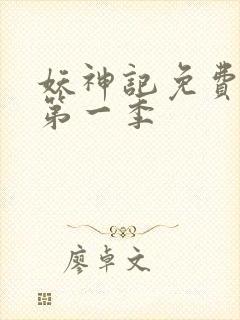 妖神記免費
第一季
廖卓文